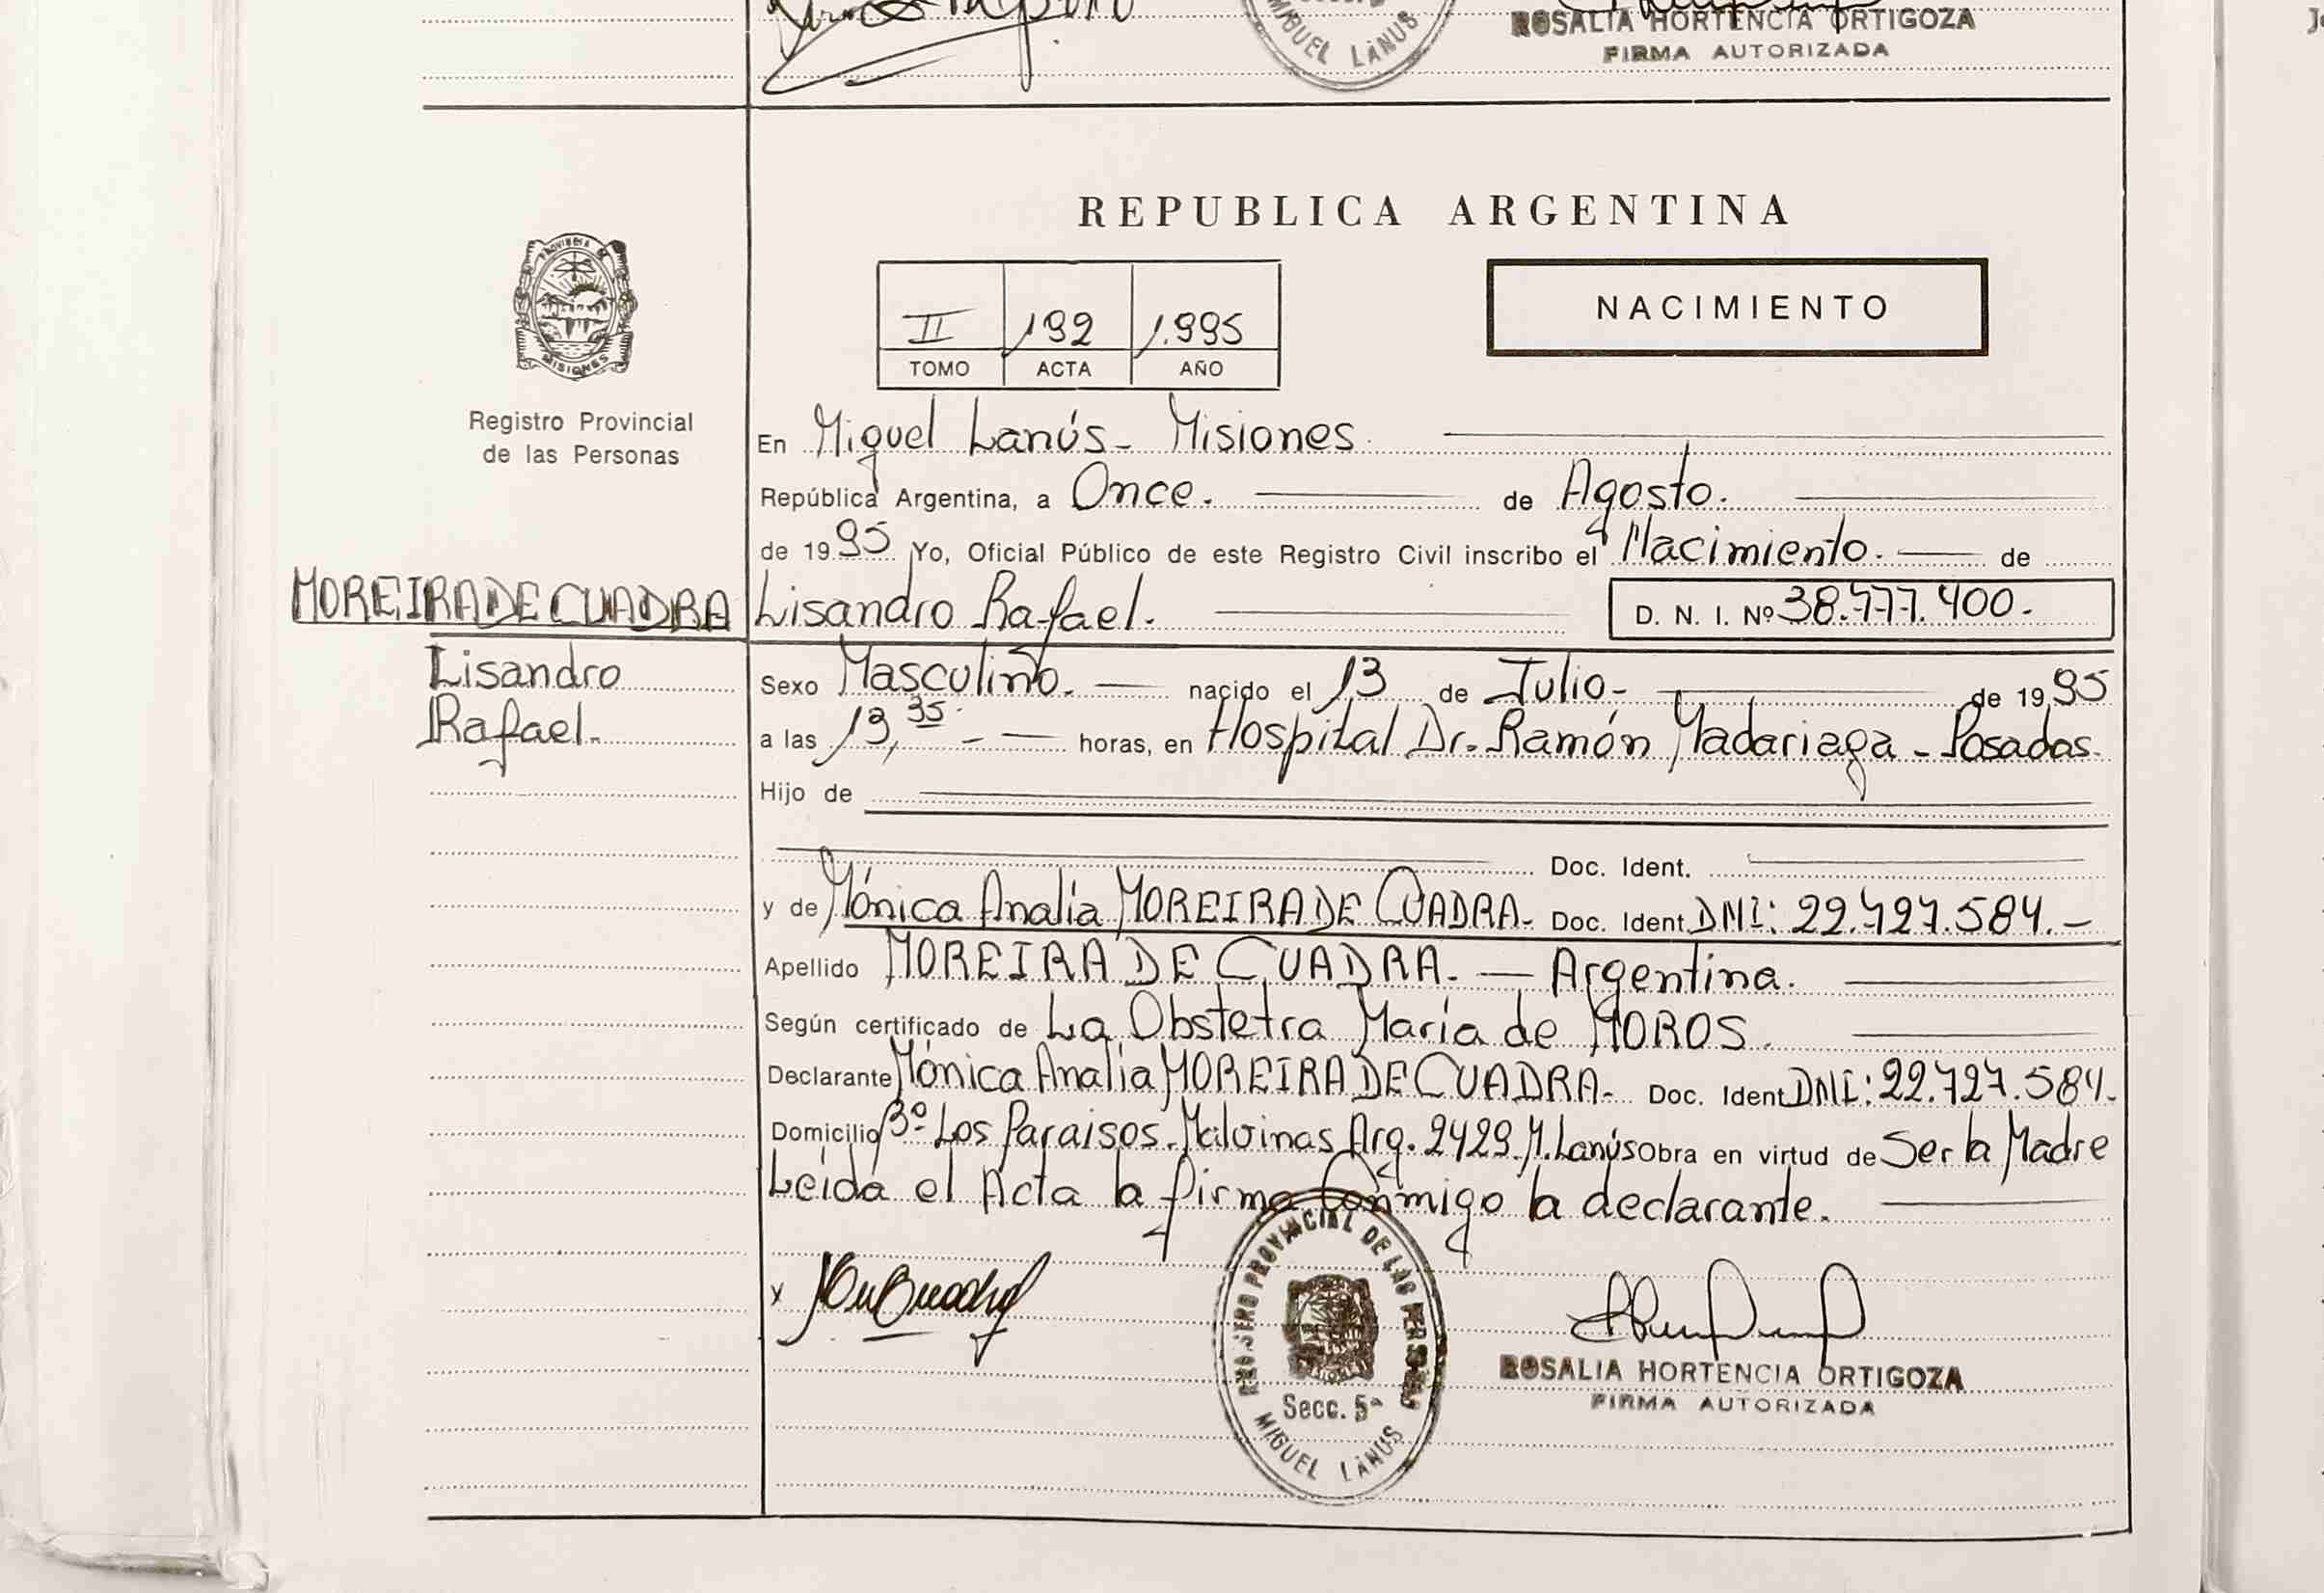 MIGUEL LANUS
ROSALIA HORTENCIA ORTIGOZA
FIRMA AUTORIZADA
REPUBLICA ARGENTINA
PROVINCIA DE
MISIONES
II 192 1.995
TOMO ACTA AÑO
NACIMIENTO
Registro Provincial
de las Personas
En Miguel Lanús - Misiones.
República Argentina, a Once. de Agosto.
de 1995 Yo, Oficial Público de este Registro Civil inscribo el Nacimiento. de
MOREIRA DE CUADRA
Lisandro
Rafael.
Lisandro Rafael. D. N. I. Nº 38.777.400.
Sexo Masculino. nacido el 13 de Julio. de 1995
a las 13,35. horas, en Hospital Dr. Ramón Madariaga - Posadas.
Hijo de
Doc. Ident.
y de Mónica Analía MOREIRA DE CUADRA. Doc. Ident. DNI: 22.727.584.-
Apellido MOREIRA DE CUADRA. — Argentina.
Según certificado de La Obstetra María de MOROS.
Declarante Mónica Analía MOREIRA DE CUADRA. Doc. Ident. DNI: 22.727.584.
Domicilio Bº Los Paraisos. Malvinas Arg. 2429. M. Lanús Obra en virtud de Ser la Madre
Leída el Acta la firma Conmigo la declarante.
x
REGISTRO PROVINCIAL DE LAS PERSONAS
Secc. 5ª
MIGUEL LANUS
ROSALIA HORTENCIA ORTIGOZA
FIRMA AUTORIZADA